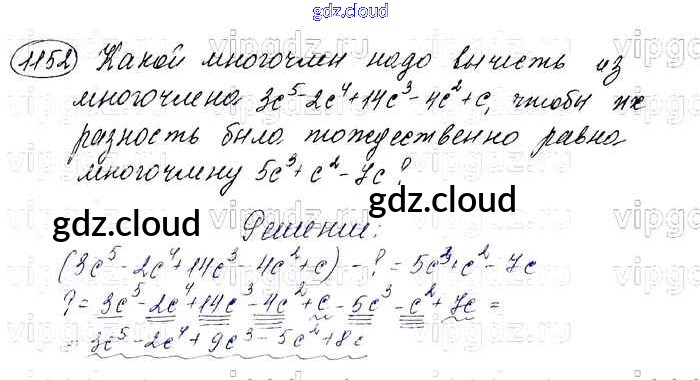 gdz.cloud
1152 Какой многочлен надо вычесть из
многочлена 3c⁵-2c⁴+14c³-4c²+c, чтобы их
разность была тождественно равна
многочлену 5c³+c²-7c?
gdz.cloud gdz.cloud
Решение:
(3c⁵-2c⁴+14c³-4c²+c)-?=5c³+c²-7c
?=3c⁵-2c⁴+14c³-4c²+c-5c³-c²+7c=
=3c⁵-2c⁴+9c³-5c²+8c